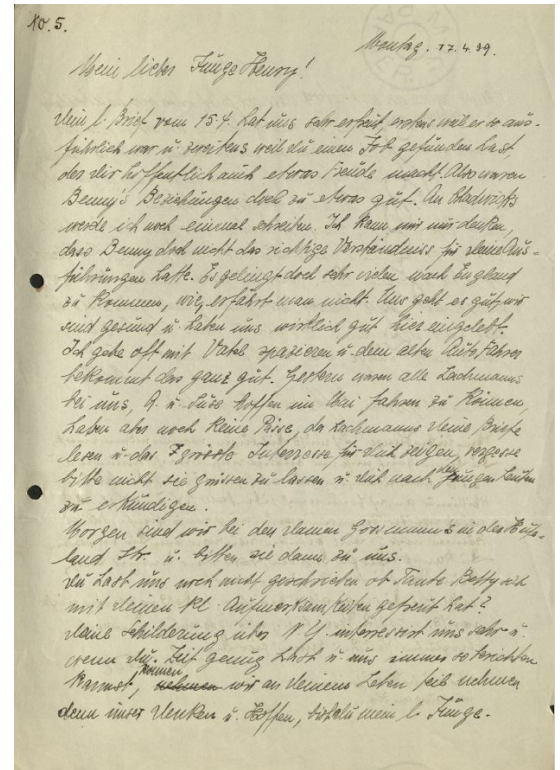 No. 5.
Montag. 17.4.39.
Mein lieber Junge Henry!
Dein l. Brief vom 15.4. hat uns sehr erfreut, erstens weil er so aus-
führlich war u. zweitens weil du einen Job gefunden hast,
der dir hoffentlich auch etwas Freude macht. Also waren
Benny's Beziehungen doch zu etwas gut. An
werde ich noch einmal schreiben. Ich kann mir nur denken,
dass Benny doch nicht das richtige Verständniss für deine Aus-
führungen hatte. Es gelingt doch sehr vielen nach England
zu kommen, wie, erfährt man nicht. Uns geht es gut, wir
sind gesund u. haben uns wirklich gut hier eingelebt.
Ich gehe oft mit Vatel spazieren u. dem alten Auto Fahrer
bekommt das ganz gut. Gestern waren alle Lachmanns
bei uns, u. Suse hoffen im Mai fahren zu können,
haben aber noch keine Pässe, da Lachmanns deine Briefe
lesen u. das grösste Interresse für dich zeigen, vergesse
bitte nicht sie grüssen zu lassen u. dich nach den jungen Leuten
zu erkundigen.
Morgen sind wir bei den Damen in der
land Str. u. bitten sie dann zu uns.
Du hast uns noch nicht geschrieben ob Tante Betty sich
mit deinen kl. Aufmerksamkeiten gefreut hat?
Deine Schilderung über N.Y. interressirt uns sehr u.
wenn du Zeit genug hast u. uns immer so berichten
kannst, können wir an deinem Leben teil nehmen
denn unser Denken u. Hoffen, bist du mein l. Junge.